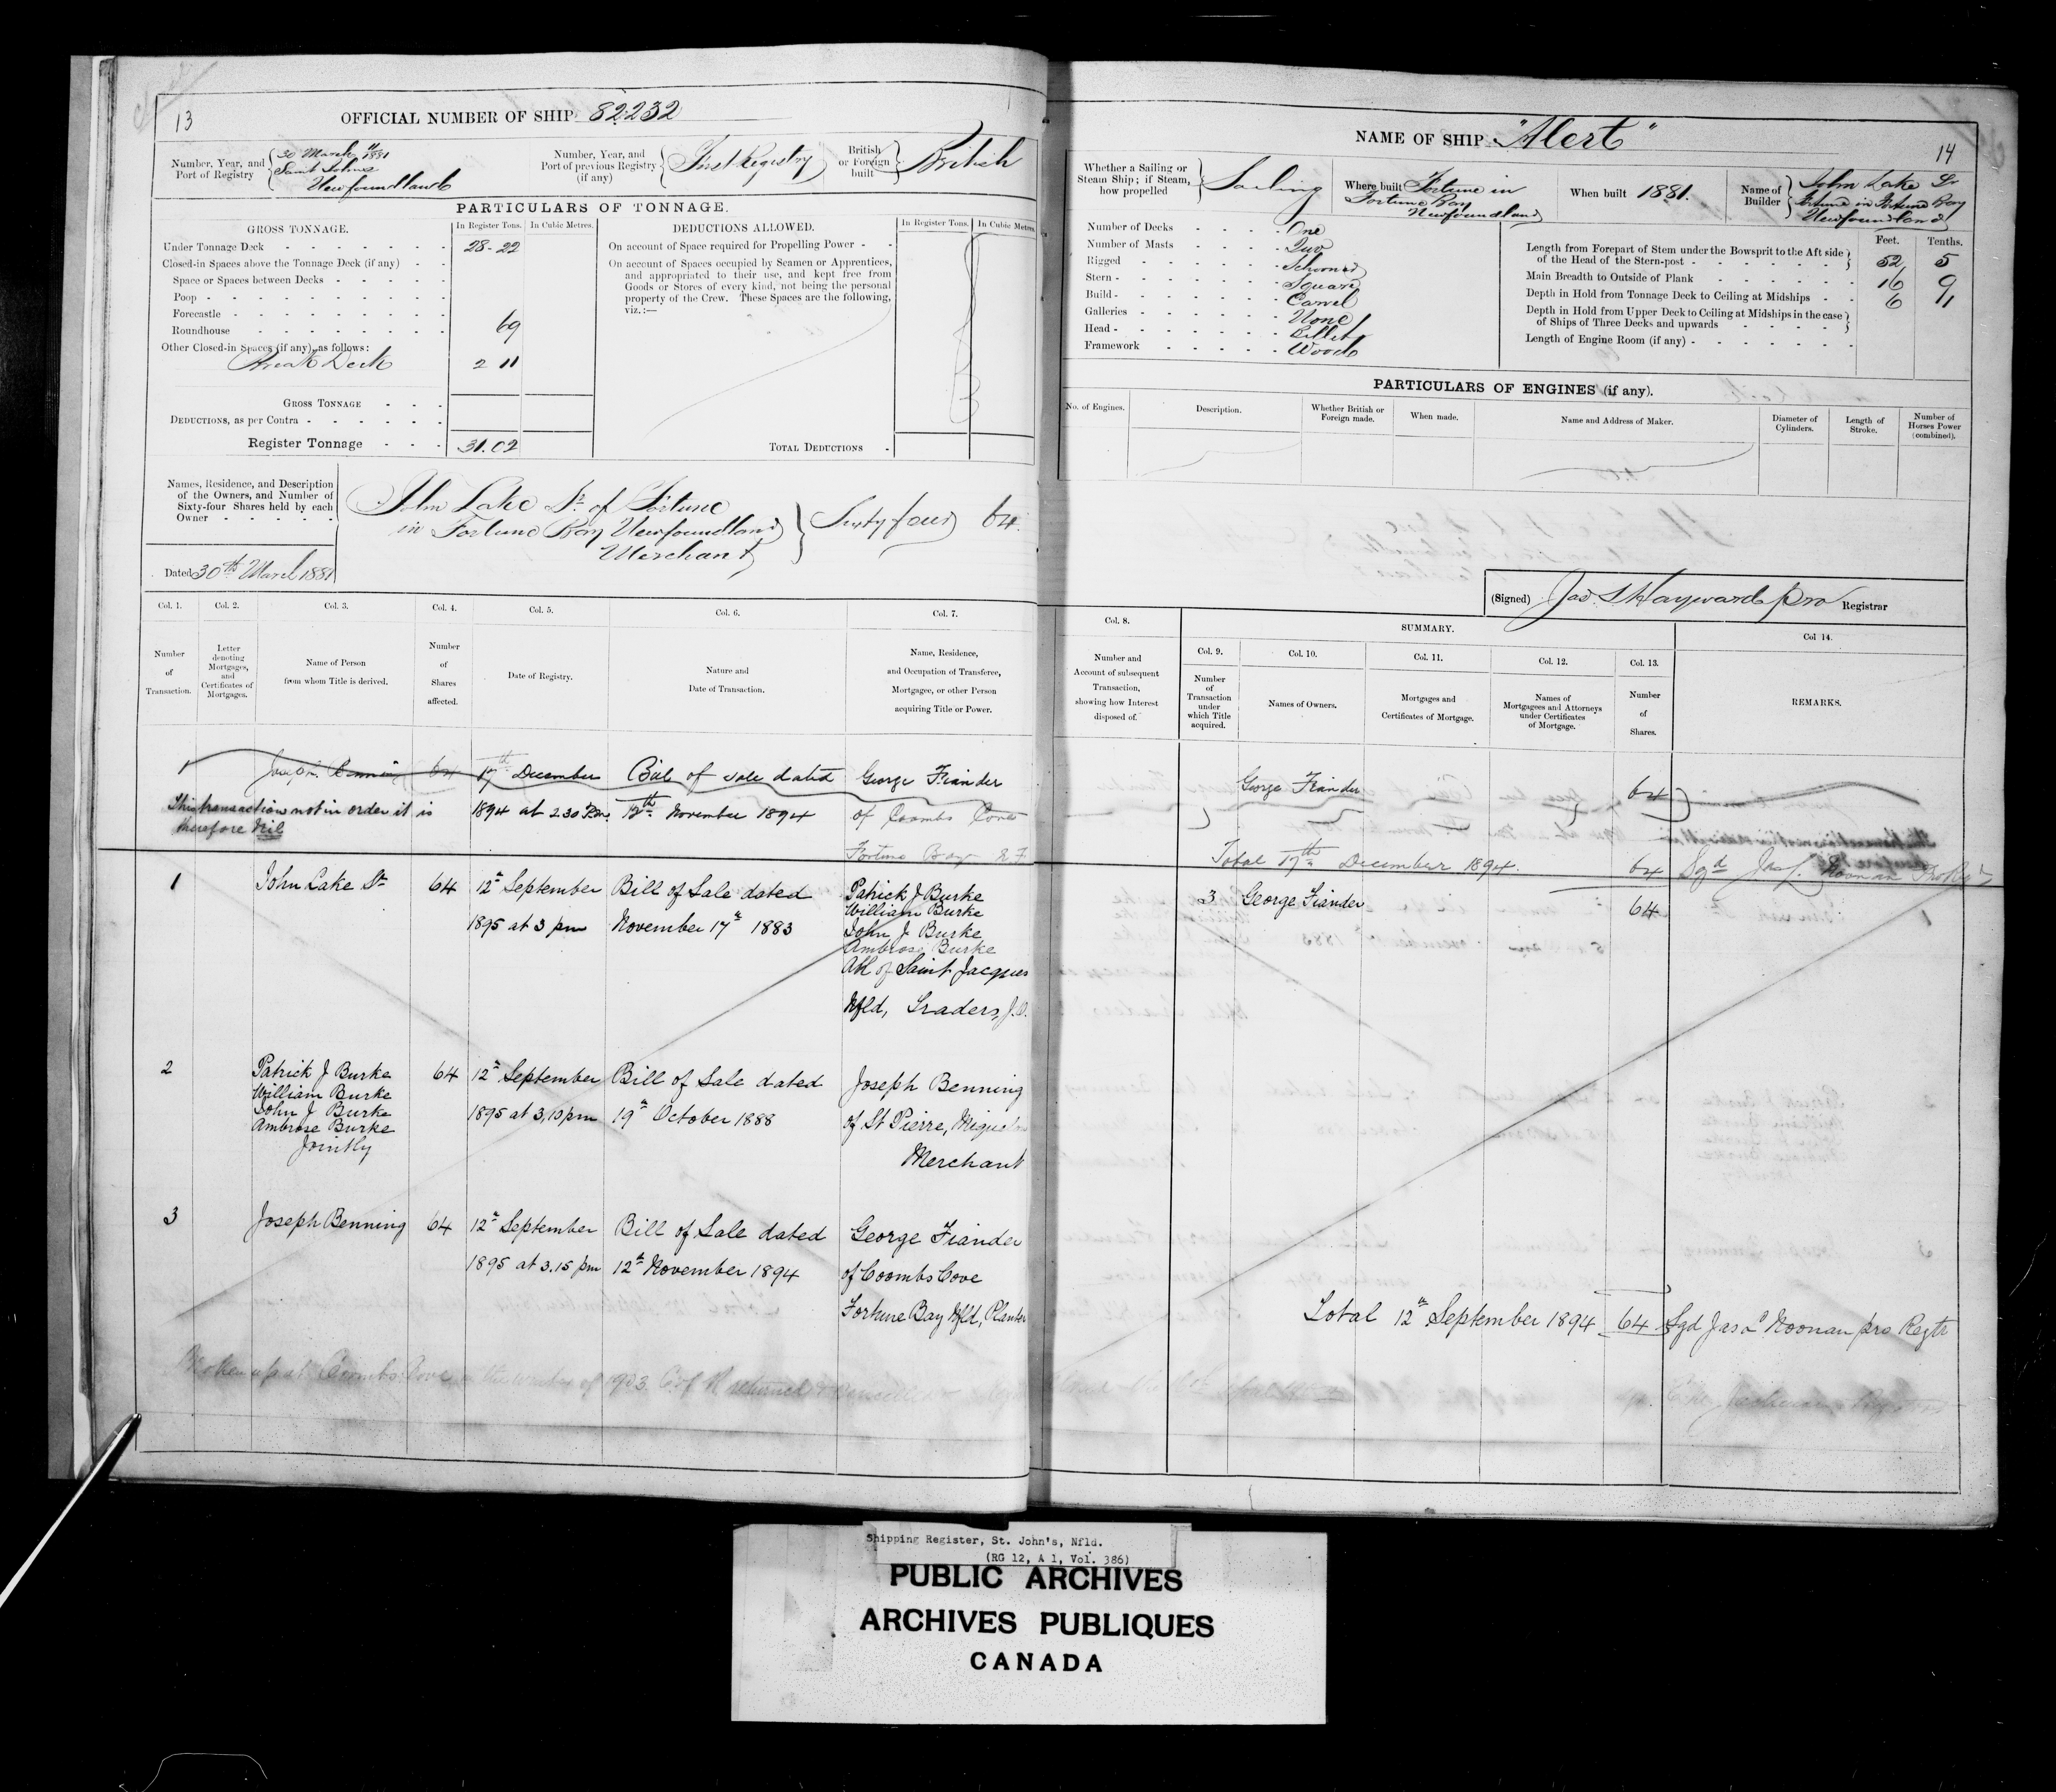 13
OFFICIAL NUMBER OF SHIP 82232
Number, Year, and Port of Registry
30 March 1881
Saint Johns
Newfoundland
Number, Year, and Port of previous Registry (if any)
First Registry
British or Foreign built
British
PARTICULARS OF TONNAGE.
GROSS TONNAGE.
In Register Tons.
In Cubic Metres.
Under Tonnage Deck 28.22
Closed-in Spaces above the Tonnage Deck (if any)
Space or Spaces between Decks
Poop
Forecastle
Roundhouse 69
Other Closed-in Spaces (if any), as follows:
Break Deck 2 11
GROSS TONNAGE
DEDUCTIONS, as per Contra
Register Tonnage 31.02
DEDUCTIONS ALLOWED.
In Register Tons.
In Cubic Metres.
On account of Space required for Propelling Power
On account of Spaces occupied by Seamen or Apprentices,
and appropriated to their use, and kept free from
Goods or Stores of every kind, not being the personal
property of the Crew. These Spaces are the following,
viz.:—
TOTAL DEDUCTIONS
Names, Residence, and Description
of the Owners, and Number of
Sixty-four Shares held by each
Owner
John Lake Sr. of Fortune
in Fortune Bay Newfoundland
Merchant
Sixty four 64
Dated 30th March 1881
Col. 1. Col. 2. Col. 3. Col. 4. Col. 5. Col. 6. Col. 7.
Number of Transaction.
Letter denoting Mortgages, and Certificates of Mortgages.
Name of Person from whom Title is derived.
Number of Shares affected.
Date of Registry.
Nature and Date of Transaction.
Name, Residence, and Occupation of Transferee, Mortgagee, or other Person acquiring Title or Power.
1 Joseph Benning 64 17th December Bill of sale dated George Fiander
This transaction not in order it is 1894 at 2.30 P.m. 12th November 1894 of Coombs Cove
therefore Nil
Fortune Bay N.F.
1 John Lake Sr 64 12th September Bill of Sale dated Patrick J Burke
William Burke
1895 at 3 pm November 17th 1883 John J Burke
Ambrose Burke
All of Saint Jacques
Nfld, Traders, J.O.
2 Patrick J Burke 64 12th September Bill of Sale dated Joseph Benning
William Burke
John J Burke 1895 at 3,10 pm 19th October 1888 of St Pierre, Miquelon
Ambrose Burke
Jointly
Merchant
3 Joseph Benning 64 12th September Bill of Sale dated George Fiander
1895 at 3.15 pm 12th November 1894 of Coombs Cove
Fortune Bay Nfld, Planter
Broken up at Coombs Cove in the winter of 1903. C of R returned & cancelled
NAME OF SHIP "Alert"
14
Whether a Sailing or Steam Ship; if Steam, how propelled
Sailing
Where built Fortune in
Fortune Bay
Newfoundland
When built 1881.
Name of Builder
John Lake Sr
Fortune in Fortune Bay
Newfoundland
Number of Decks One
Number of Masts Two
Rigged Schooner
Stern Square
Build Carvel
Galleries None
Head Billet
Framework Wood
Feet. Tenths.
Length from Forepart of Stem under the Bowsprit to the Aft side
of the Head of the Stern-post 52 5
Main Breadth to Outside of Plank 16 9
Depth in Hold from Tonnage Deck to Ceiling at Midships 6 1
Depth in Hold from Upper Deck to Ceiling at Midships in the case
of Ships of Three Decks and upwards
Length of Engine Room (if any)
PARTICULARS OF ENGINES (if any).
No. of Engines.
Description.
Whether British or Foreign made.
When made.
Name and Address of Maker.
Diameter of Cylinders.
Length of Stroke.
Number of Horses Power (combined).
(Signed) Jas S Hayward pro Registrar
Col. 8.
SUMMARY.
Col. 9. Col. 10. Col. 11. Col. 12. Col. 13. Col 14.
Number and Account of subsequent Transaction, showing how Interest disposed of.
Number of Transaction under which Title acquired.
Names of Owners.
Mortgages and Certificates of Mortgage.
Names of Mortgagees and Attorneys under Certificates of Mortgage.
Number of Shares.
REMARKS.
George Fiander 64
Total 17th December 1894. 64 Sgd Jas. L. Noonan Pro Regr
3 George Fiander 64
Total 12th September 1894 64 Sgd Jas L Noonan pro Regtr
Shipping Register, St. John's, Nfld.
(RG 12, A 1, Vol. 386)
PUBLIC ARCHIVES
ARCHIVES PUBLIQUES
CANADA